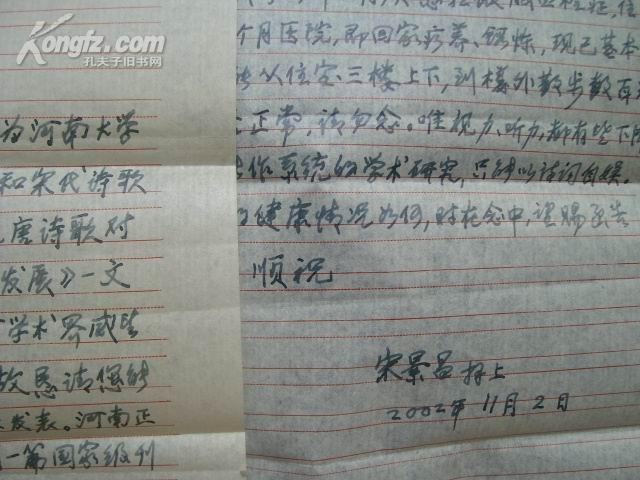 Kongfz.com
孔夫子旧书网
为河南大学
和宋代诗歌
唐诗歌对
发展》一文
学术界咸
故恳请您能
发表。河南正
一篇国家级刊
个月医院,即回家疗养、锻炼,现已基本
以住室三楼上下,到楼外散步数百
正常,请勿念。唯视力、听力,都有些下
作系统的学术研究,只能以诗词自娱。
健康情况如何,时在念中,望赐函告
顺祝
宋景昌拜上
2002年11月2日